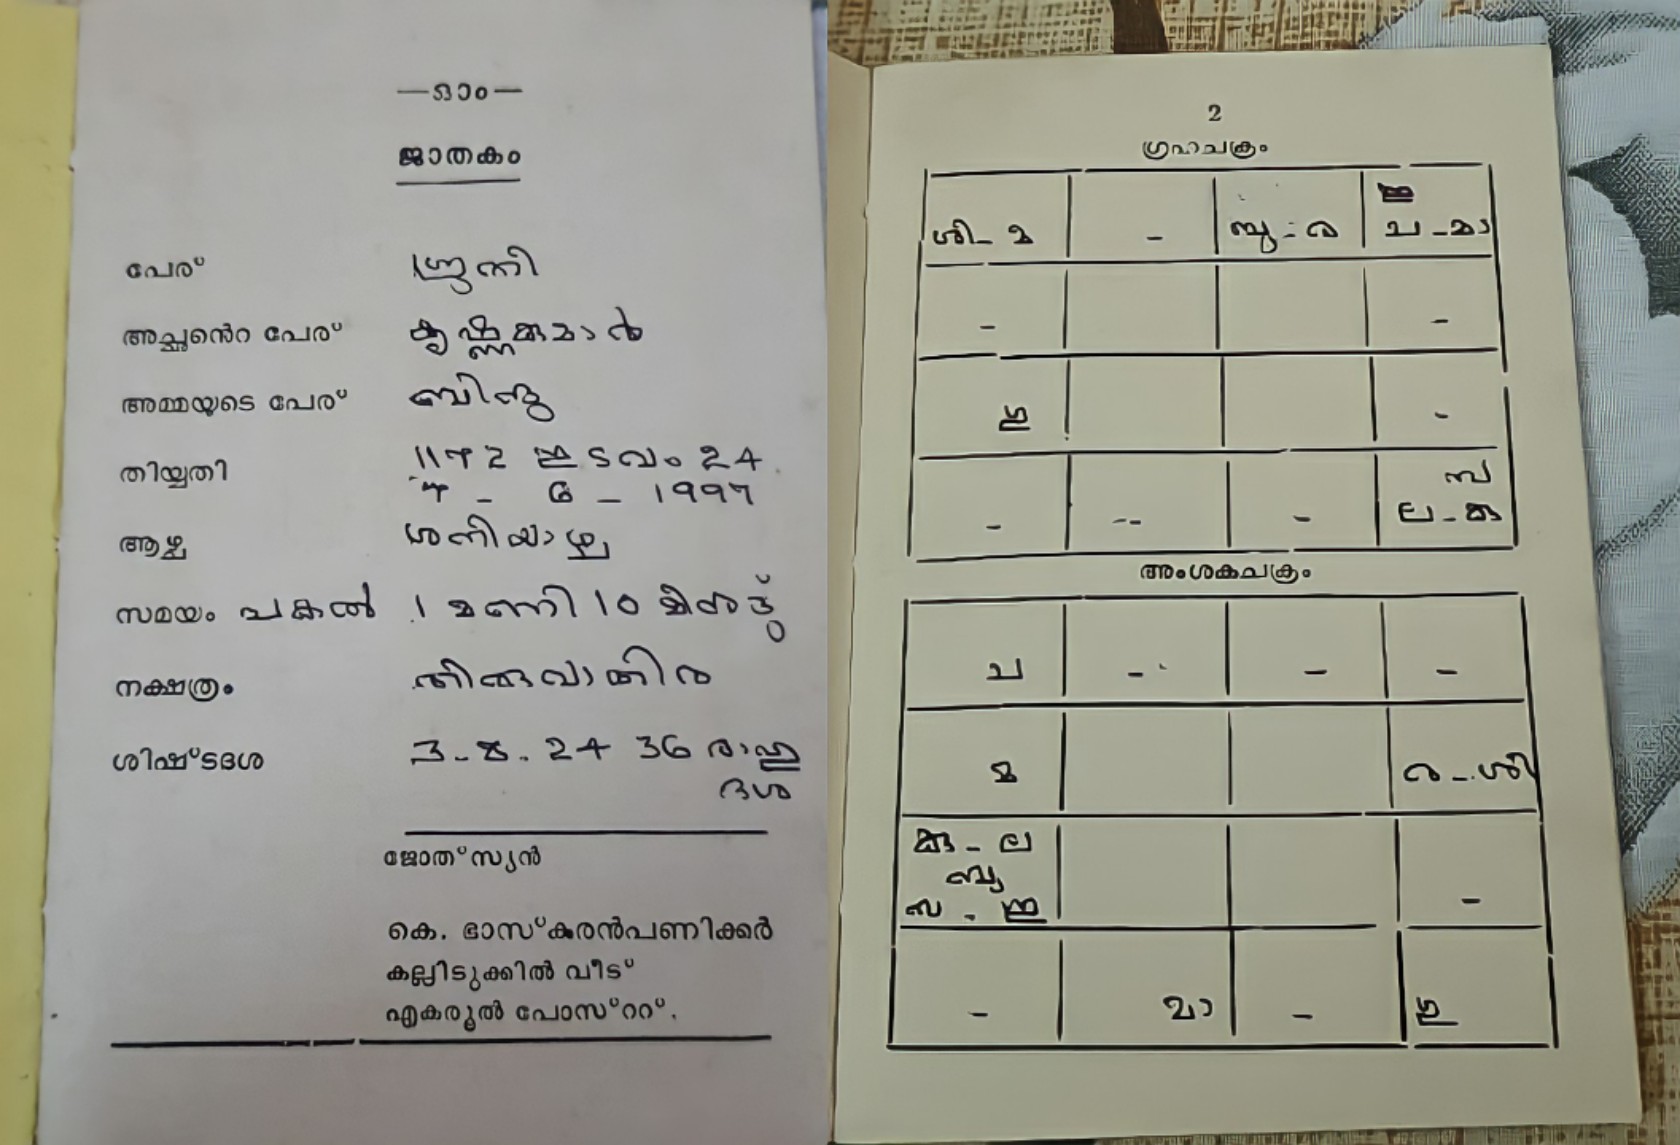 —ഓം—
ജാതകം
പേര് ശ്രുതി
അച്ഛന്റെ പേര് കൃഷ്ണകുമാർ
അമ്മയുടെ പേര് ബിന്ദു
തിയ്യതി 1172 ഇടവം 24
7 - 6 - 1997
ആഴ്ച ശനിയാഴ്ച
സമയം പകൽ 1 മണി 10 മിനുട്ട്
നക്ഷത്രം തിരുവാതിര
ശിഷ്ടദശ 3-8-24 36 രാഹു
ദശ
ജോത്സ്യൻ
കെ. ഭാസ്കരൻപണിക്കർ
കല്ലിടുക്കിൽ വീട്
എകരൂൽ പോസ്ററ്.
2
ഗ്രഹചക്രം
ശി - മ - ബു - ര ച - മാ
- -
ഗു -
- -- - സ
ല - കു
അംശകചക്രം
ച - - -
മ ര - ശി
കു - ല
ബു
-
- മാ - ഗു